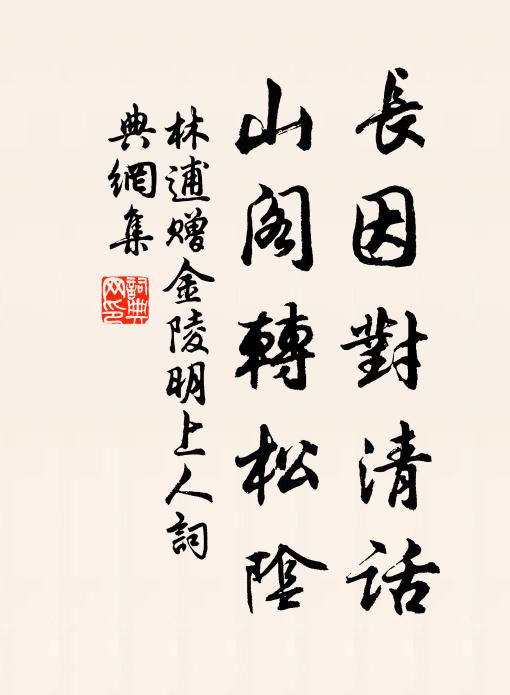 長因對清話
山閣轉松陰
林逋贈金陵明上人詞
典網集
詞典網印